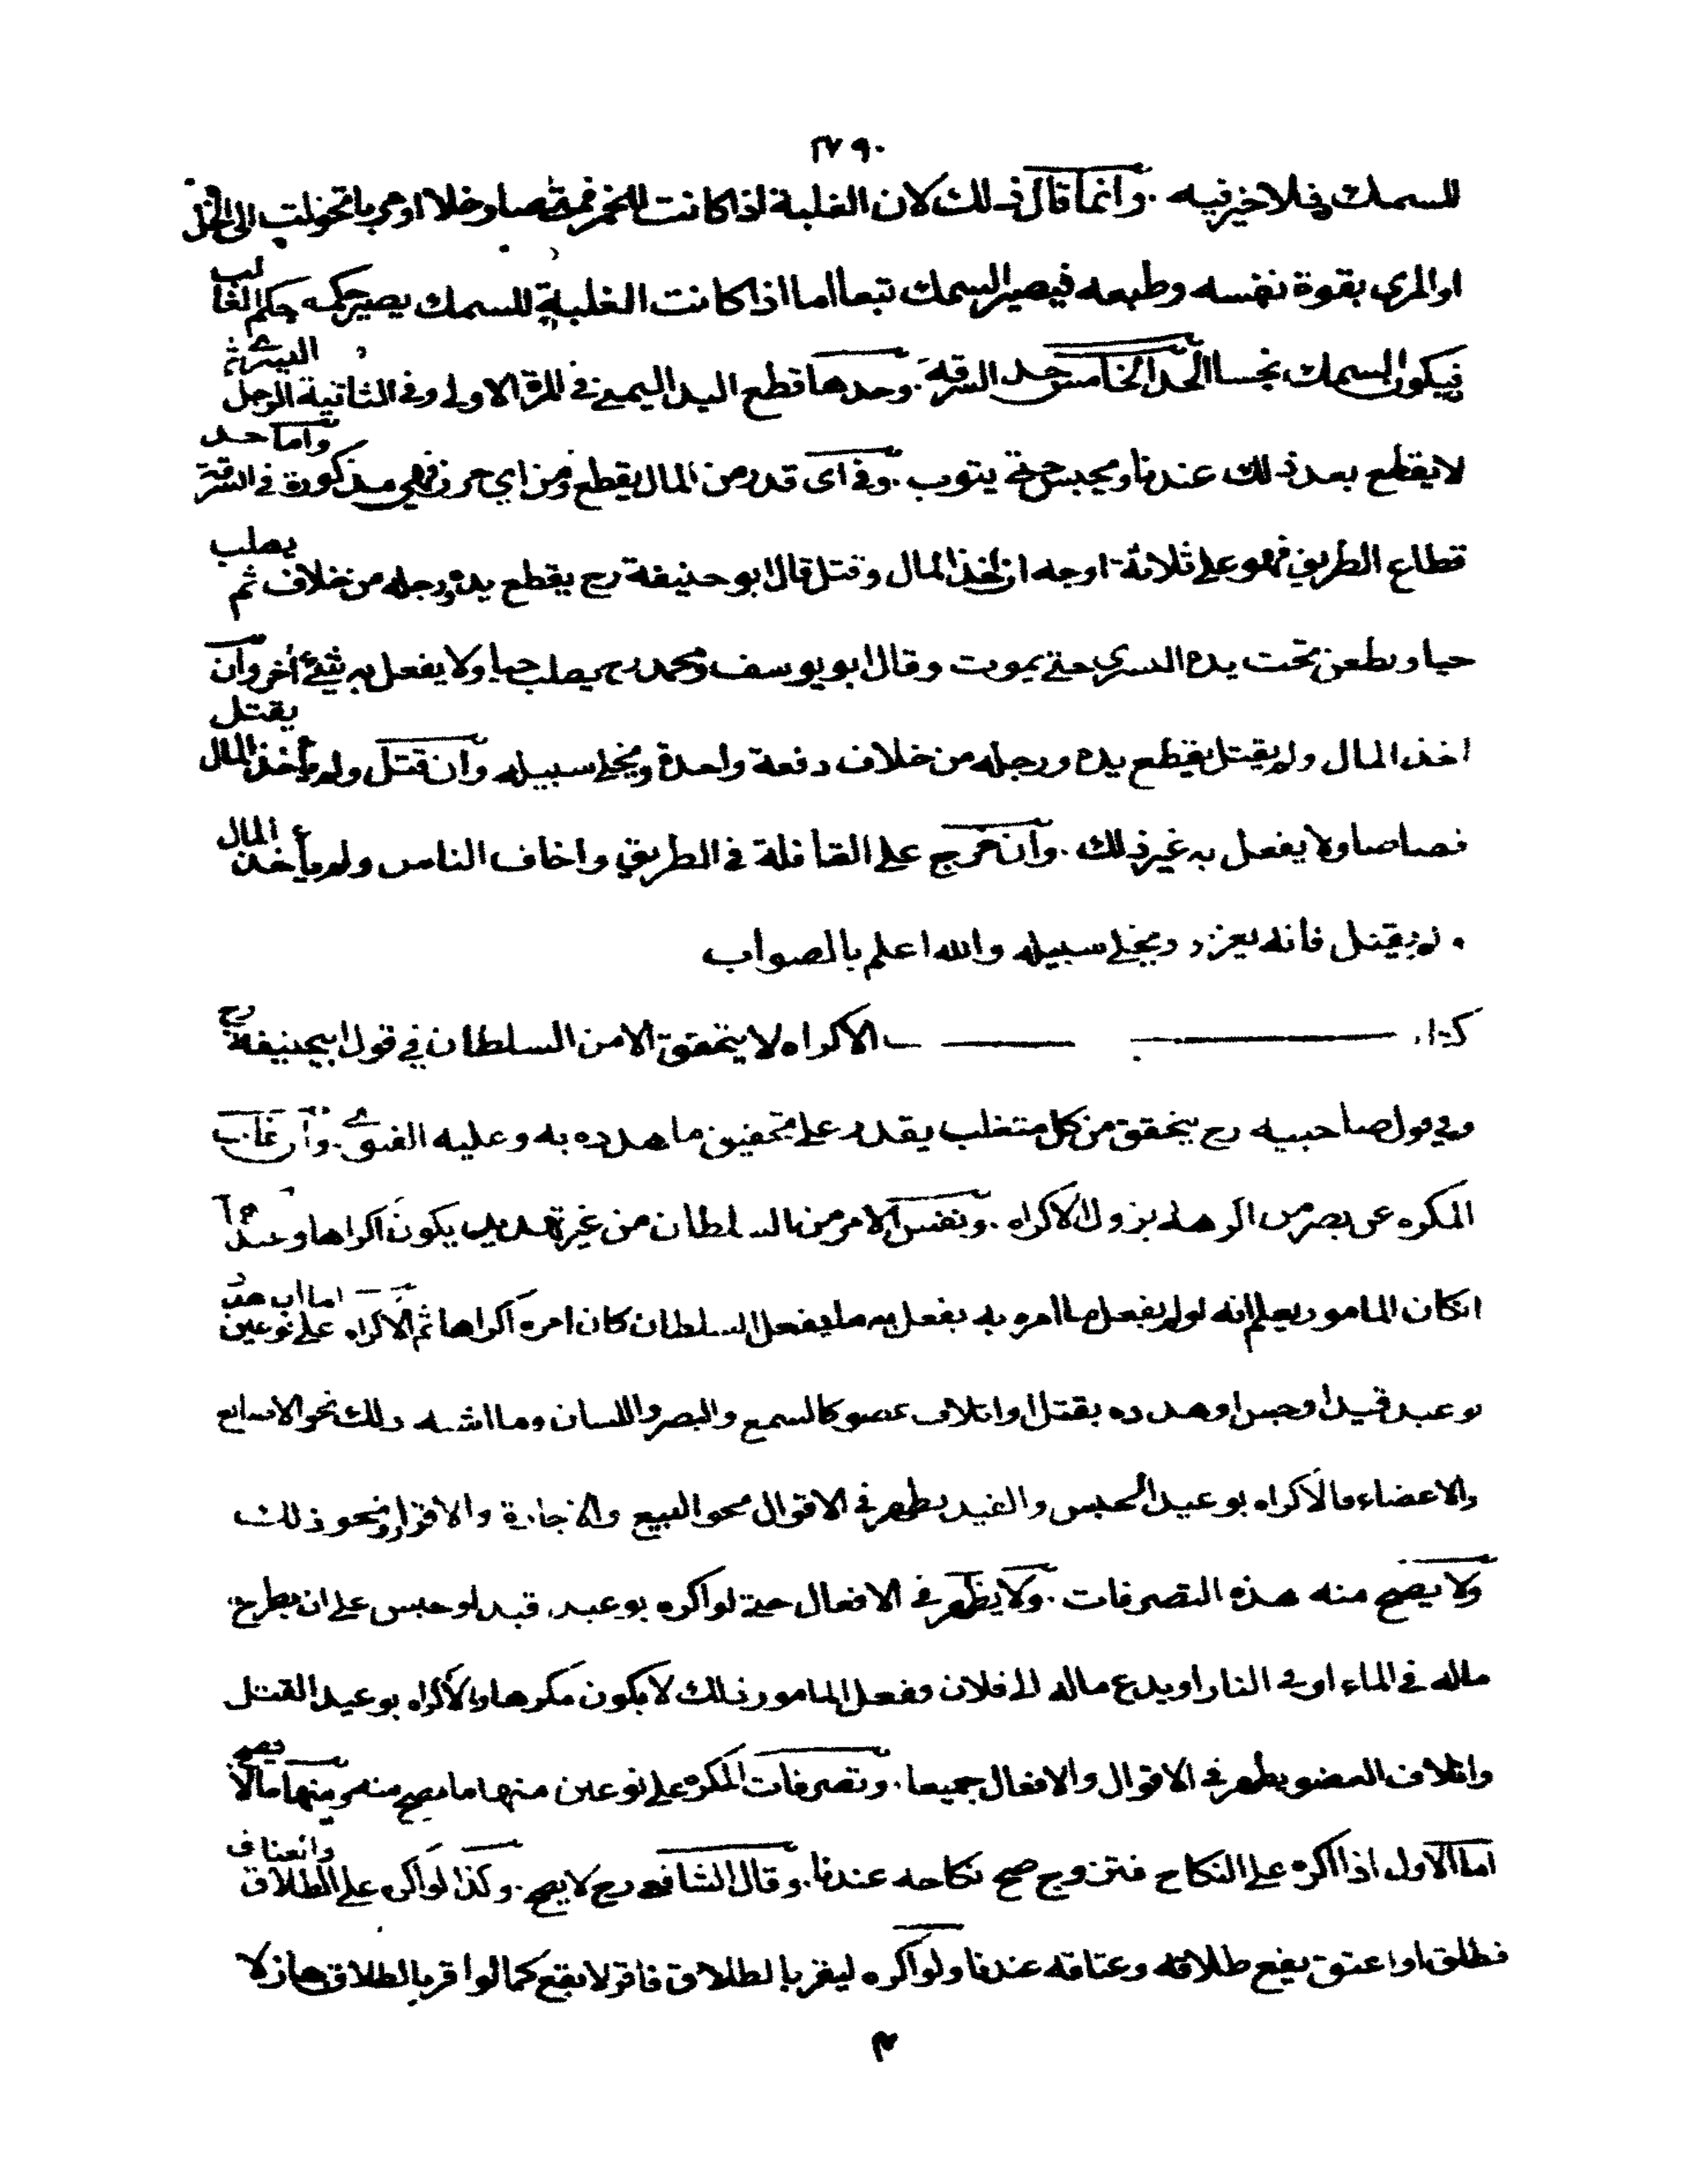 ٢٧٩٠
للسمك فلا خير فيه . وانما قال ذلك لان الغلبة اذا كانت للخمر فمتى صار خلا او مريا تحولت الى الخل
او المري بقوة نفسه وطبعه فيصير السمك تبعا اما اذا كانت الغلبة للسمك يصير حكمه حكم الغالب
فيكون السمك نجسا الحد الخامس حد السرقة . وحدها قطع اليد اليمنى في المرة الاولى وفي الثانية الرجل اليسرى ثم
لا يقطع بعد ذلك عندنا ويحبس حتى يتوب . وفي اى قدر من المال يقطع ومن اي حرز فهي مذكورة في السرقة واما حد
قطاع الطريق فهو على ثلاثة اوجه ان اخذ المال وقتل قال ابو حنيفة رح يقطع يده ورجله من خلاف ثم يصلب
حيا ويطعن تحت يده اليسرى حتى يموت وقال ابو يوسف ومحمد رح يصلب حيا ولا يفعل به شيئ أخر وان
اخذ المال ولم يقتل يقطع يده ورجله من خلاف دفعة واحدة ويخلى سبيله وان قتل ولم يأخذ المال يقتل
قصاصا ولا يفعل به غير ذلك . وان خرج على القافلة في الطريق واخاف الناس ولم يأخذ المال
ولم يقتل فانه يعزر ويخلى سبيله والله اعلم بالصواب
كتاب الاكراه لا يتحقق الا من السلطان في قول ابيحنيفة رح
وفي قول صاحبيه رح يتحقق من كل متغلب يقدر على تحقيق ما هدده به وعليه الفتوى . وان غاب
المكره عن بصر من اكرهه يزول الاكراه . ونفس الامر من السلطان من غير تهديد يكون اكراها وعندهما
انكان المامور يعلم انه لو لم يفعل ما امره به يفعل به ما يفعل السلطان كان امره اكراها ثم الاكراه على نوعين اما ان هدد
بوعيد قيد او حبس او هدده بقتل او اتلاف عضو كالسمع والبصر واللسان وما اشبه ذلك نحو الاصابع
والاعضاء فالاكراه بوعيد الحبس والقيد يظهر في الاقوال نحو البيع والاجارة والاقرار ونحو ذلك
ولا يصح منه هذه التصرفات . ولا يظهر في الافعال حتى لو اكره بوعيد قيد او حبس على ان يطرح
ماله في الماء او في النار او يدع ماله الى فلان ففعل المامور ذلك لا يكون مكرها والاكراه بوعيد القتل
واتلاف العضو يظهر في الاقوال والافعال جميعا . وتصرفات المكره على نوعين منها ما يصح منه ومنها مالا يصح
اما الاول اذا اكره على النكاح فتزوج صح نكاحه عندنا . وقال الشافعي رح لا يصح . وكذا لو اكره على الطلاق والعتاق
فطلق او اعتق يقع طلاقه وعتاقه عندنا ولو اكره ليقر بالطلاق فاقر لا يقع كما لو اقر بالطلاق هازلا